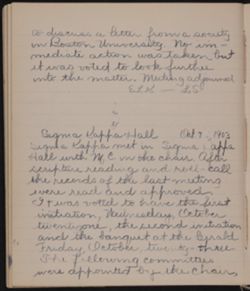 to discuss a letter from a society
in Boston University. No im-
mediate action was taken but
it was voted to look further
into the matter. Meeting adjourned
Sigma Kappa Hall Oct 7, 1903
Sigma Kappa met in Sigma Kappa
Hall with M.C. in the chair. After
scripture reading and roll-call
the records of the last meeting
were read and approved.
It was voted to have the first
initiation, Wednesday, October
twenty one, the second initiation
and the banquet at the Gerald
Friday, October twenty-three.
The following committees
were appointed by the chair,